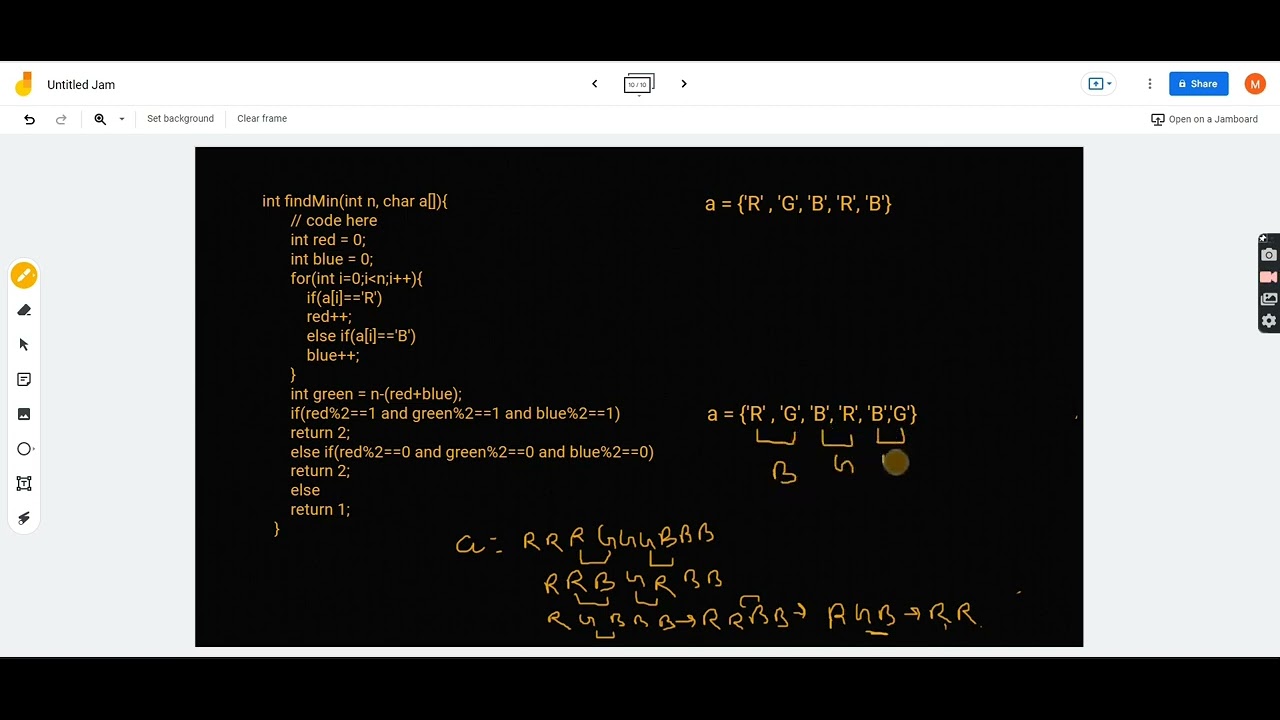 Untitled Jam
10 / 10
Share
M
Set background
Clear frame
Open on a Jamboard
int findMin(int n, char a[]){
// code here
int red = 0;
int blue = 0;
for(int i=0;i<n;i++){
if(a[i]=='R')
red++;
else if(a[i]=='B')
blue++;
}
int green = n-(red+blue);
if(red%2==1 and green%2==1 and blue%2==1)
return 2;
else if(red%2==0 and green%2==0 and blue%2==0)
return 2;
else
return 1;
}
a = {'R' , 'G', 'B', 'R', 'B'}
a = {'R' , 'G', 'B', 'R', 'B','G'}
B G
a = R R R G G G B B B
R R B G R B B
R G B R B → R R B B → R G B → R, R.